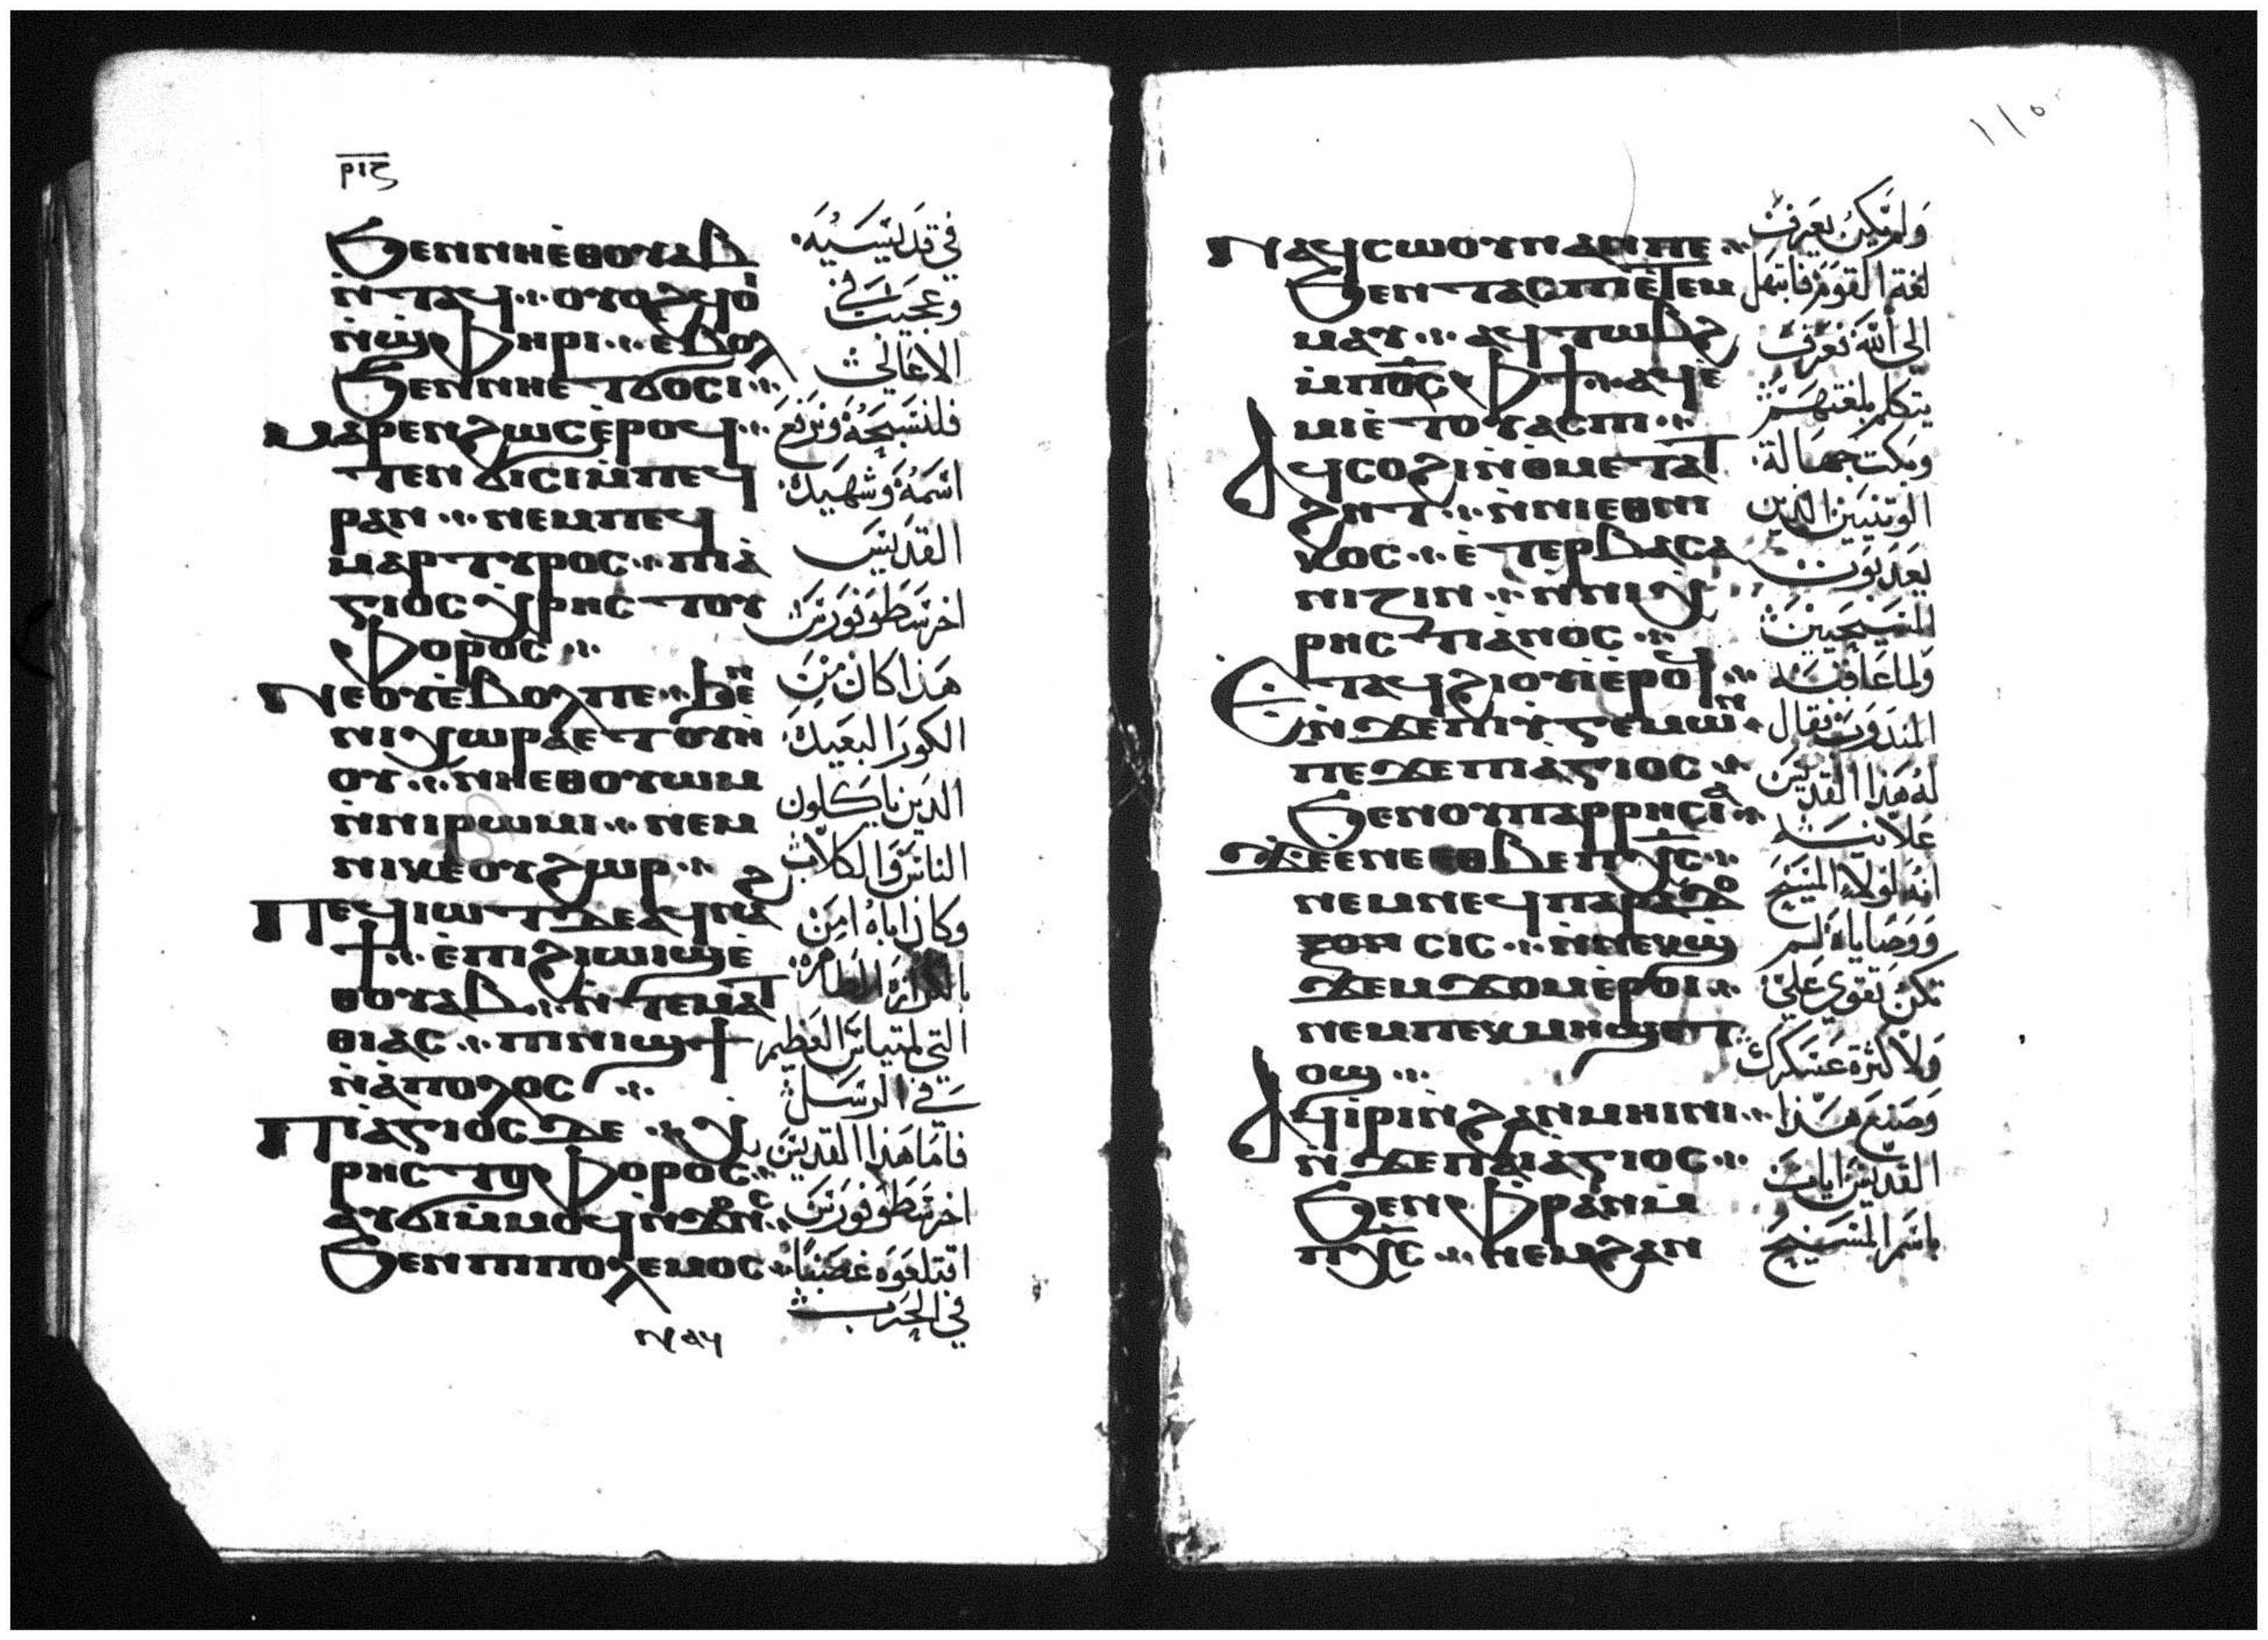 ⲣⲓⲋ
ϧⲉⲛⲛⲏⲉ̀ⲑⲟⲩⲁⲃ
ⲛ̀ⲧⲁϥ ⲟⲩⲟϩϥⲟ̀
ⲛ̀ϣⲫⲏⲣⲓ ⲉⲃⲟⲗ
ϧⲉⲛⲛⲏⲉ ⲧϭⲟⲥⲓ
ⲙⲁⲣⲉⲛϩⲱⲥⲉ̀ⲣⲟϥ
ⲧⲉⲛ ϭⲓⲥⲓⲙ̀ⲡⲉϥ
ⲣⲁⲛ ⲛⲉⲙⲡⲉϥ
ⲙⲁⲣⲧⲩⲣⲟⲥ ⲡⲓⲁ̀
ⲅⲓⲟⲥ ⲭⲣⲏⲥⲧⲟⲩ
ⲫⲟⲣⲟⲥ
ⲛⲉⲟⲩⲉ̀ⲃⲟⲗⲡⲉ ϧⲉⲛ
ⲛⲓⲭⲱⲣⲁⲉⲧⲟⲩⲏ̀
ⲟⲩ ⲛⲏⲉⲑⲟⲩⲱⲙ
ⲛ̀ⲛⲓⲣⲱⲙⲓ ⲛⲉⲙ
ⲛⲓⲕⲉⲟⲩϩⲱⲣ
ⲡⲉϥⲓⲱⲧⲇⲉⲁϥⲛⲁ̀
ϯ ⲉ̀ⲡⲓϩⲓⲱⲓϣⲉ̀
ⲑⲟⲩⲁⲃ ⲛ̀ⲧⲉⲙⲁⲧ
ⲑⲓⲁⲥ ⲡⲓⲛⲓϣϯ
ⲛ̀ⲁ̀ⲡⲟⲗⲟⲥ
ⲡⲓⲁ̀ⲅⲓⲟⲥⲇⲉ ⲭ
ⲣⲏⲥⲧⲟⲫⲟⲣⲟⲥ
ⲁⲩϭⲓⲙ̀ⲙⲟϥⲛ̀ϫⲟⲛⲥ
ϧⲉⲛⲡⲓⲡⲟⲗⲉⲙⲟⲥ
ⲛⲁϥ
في قديسيه
وعجيب في
الاعالي
فلنسبحه ونرفع
اسمه وشهيده
القديس
اخرسطوفورس
هذا كان من
الكور البعيده
الدين ياكلون
الناس والكلاب
وكان اباه امن
بالكرازه الطاهره
التي لمتياس العظيم
في الرسل
فاما هذا القديس
اخرسطوفورس
اقتلعوه غصبًا
في الحرب
١١٥
ⲛⲁϥⲥⲱⲟⲩⲛⲁⲛⲡⲉ
ϧⲉⲛ ⲧⲁⲥⲡⲓⲉ̀ⲧⲉⲙ
ⲙⲁⲩ ⲁϥⲧⲱⲃϩ
ⲙ̀ⲡⲟ̅ⲥ̅ ⲫϯ ⲁϥⲉ̀
ⲙⲓⲉ̀ ⲧⲟⲩⲁⲥⲡⲓ
ⲁϥⲥⲟϩⲓⲛ̀ⲑⲙⲉⲧⲁⲧ
ϩⲏⲧ ⲛ̀ⲛⲓⲉⲑⲛⲓ
ⲕⲟⲥ ⲉ̀ⲧⲉⲣⲃⲁⲥⲁ
ⲛⲓⲍⲓⲛ ⲛ̀ⲛⲓⲭ
ⲣⲏⲥⲧⲓⲁ̀ⲛⲟⲥ
ⲉ̀ⲧⲁϥϩⲓⲟⲩⲓⲉ̀ⲣⲟϥ
ⲛ̀ϫⲉⲡⲓϩⲩⲅⲉⲙⲱⲛ
ⲡⲉϫⲉⲡⲓⲁ̀ⲅⲓⲟⲥ
ϧⲉⲛⲟⲩⲡⲁⲣⲣⲏⲥⲓⲁ
ϫⲉⲉⲛⲉ ⲉⲑⲃⲉⲡⲭ̅ⲥ̅
ⲛⲉⲙⲛⲉϥⲡⲁⲣⲁⲇⲟ
ⲍⲟⲛ ⲥⲓⲥ ⲛ̀ⲛⲉⲕϣ
ϫⲉⲙϫⲟⲙⲉ̀ⲣⲟⲓ
ⲛⲉⲙⲡⲉⲕⲙⲏϣⲉⲧ
ⲟϣ
ⲁϥⲓ̀ⲣⲓⲛ̀ϩⲁⲛⲙⲏⲓⲛⲓ
ⲛ̀ϫⲉⲡⲁⲓⲁ̀ⲅⲓⲟⲥ
ϧⲉⲛⲫⲣⲁⲛⲙ̀
ⲡⲭ̅ⲥ̅ ⲛⲉⲙϩⲁⲛ
ولم يكن يعرف
لغة القوم فابتهل
الى الله فعرف
يتكلم بلغتهم
وبكت جهالة
الوتنيين الدين
يعدبون
المسيحيين
ولما عاقبه
المندوب فقال
له هذا القديس
علانيه
انه لولا المسيح
ووصاياه لم
تكن تقوى علي
ولا كثرة عسكرك
وصنع هذا
القديس ايات
باسم المسيح